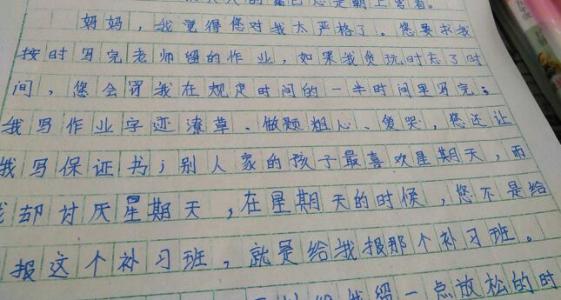 妈妈，我觉得您对我太严格了。您要求我
按时写完老师留的作业，如果我贪玩时去了时
间，您会罚我在规定时间的一半时间里写完；
我写作业字迹潦草、做题粗心、爱哭，您还让
我写保证书；别人家的孩子最喜欢星期天，而
我却讨厌星期天，在星期天的时候，您不是给
报这个补习班，就是给我报那个补习班。
一点放松的时